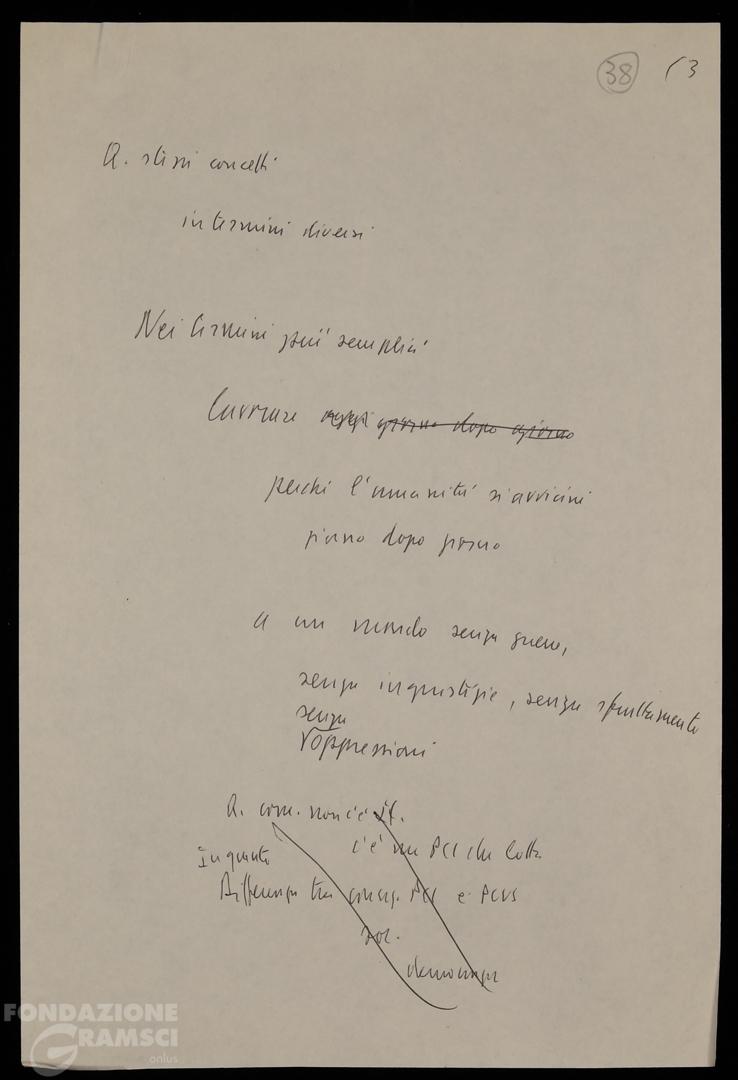 38 13
A. stessi concetti
in termini diversi
Nei termini più semplici
Lavorare oggi giorno dopo giorno
perché l'umanità si avvicini
giorno dopo giorno
a un mondo senza guerre,
senza ingiustizie, senza sfruttamento
senza
oppressioni
A. com. non c'è
c'è un PCI che lotta
In quanto
Differenza tra PCI e PCUS
soc.
FONDAZIONE
GRAMSCI
onlus